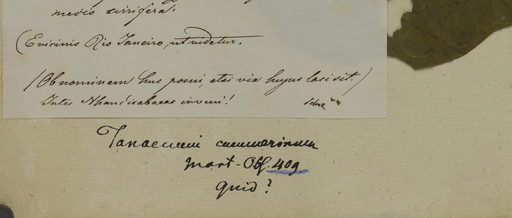 medio cirrifera.
(E vicinis Rio Janeiro, ut videtur.
(Ob nominem huc posui, etsi vix hujus loci sit.)
Inter inveni!
Tanaecium
Mart. Obs 409
quid?